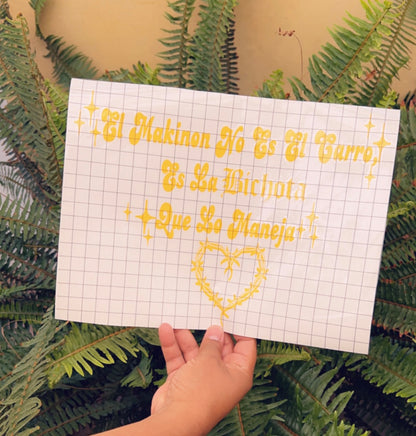 El Makinon No Es El Carro,
Es La Bichota
Que Lo Maneja